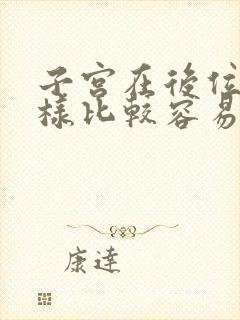 子宮在後位
樣比較容易
康達